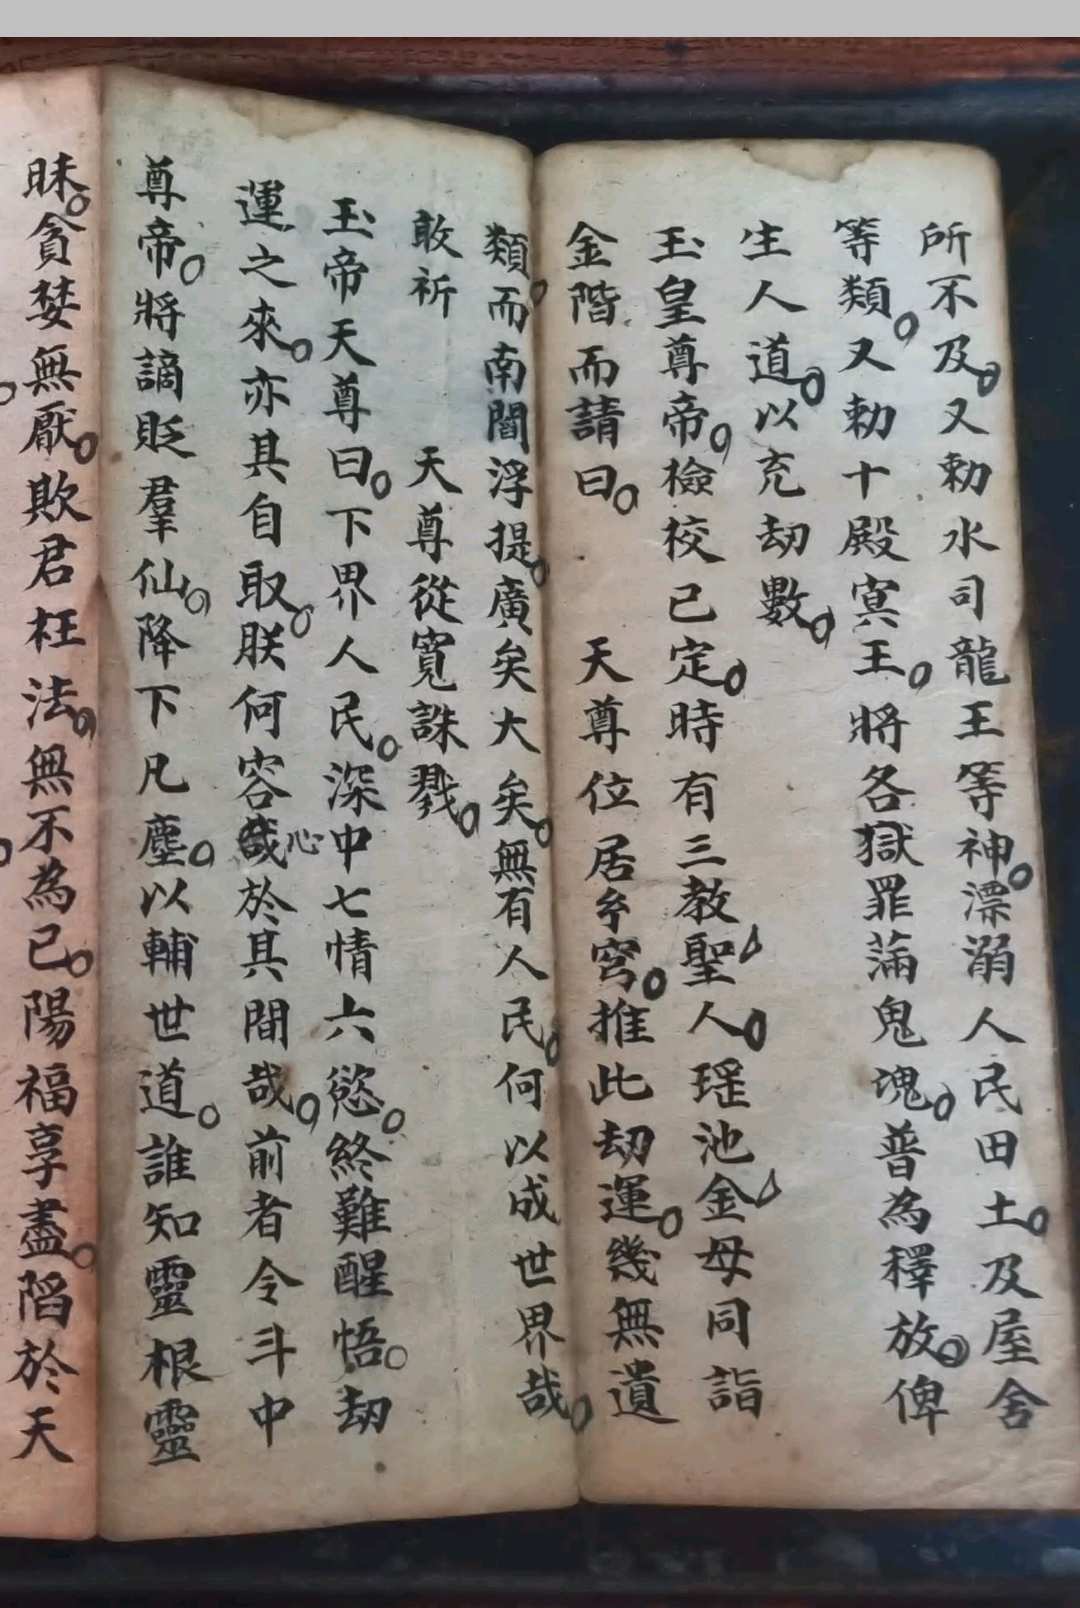 所不及。又勅水司龍王等神。漂溺人民田土。及屋舍
等類。又勅十殿冥王。將各獄罪滿鬼魂。普為釋放。俾
生人道。以充劫數。
玉皇尊帝。檢校已定。時有三教聖人。瑶池金母同詣
金階而請曰。 天尊位居穹。推此劫運。幾無遺
類。而南閻浮提。廣矣大矣。無有人民。何以成世界哉。
敢祈 天尊從寬誅戮。
玉帝天尊曰。下界人民。深中七情六慾。終難醒悟。劫
運之來。亦其自取。朕何容心哉於其間哉。前者令斗中
尊帝。將謫貶羣仙。降下凡塵。以輔世道。誰知靈根靈
昧。貪婪無厭。欺君枉法。無不為已。陽福享盡。陷於天